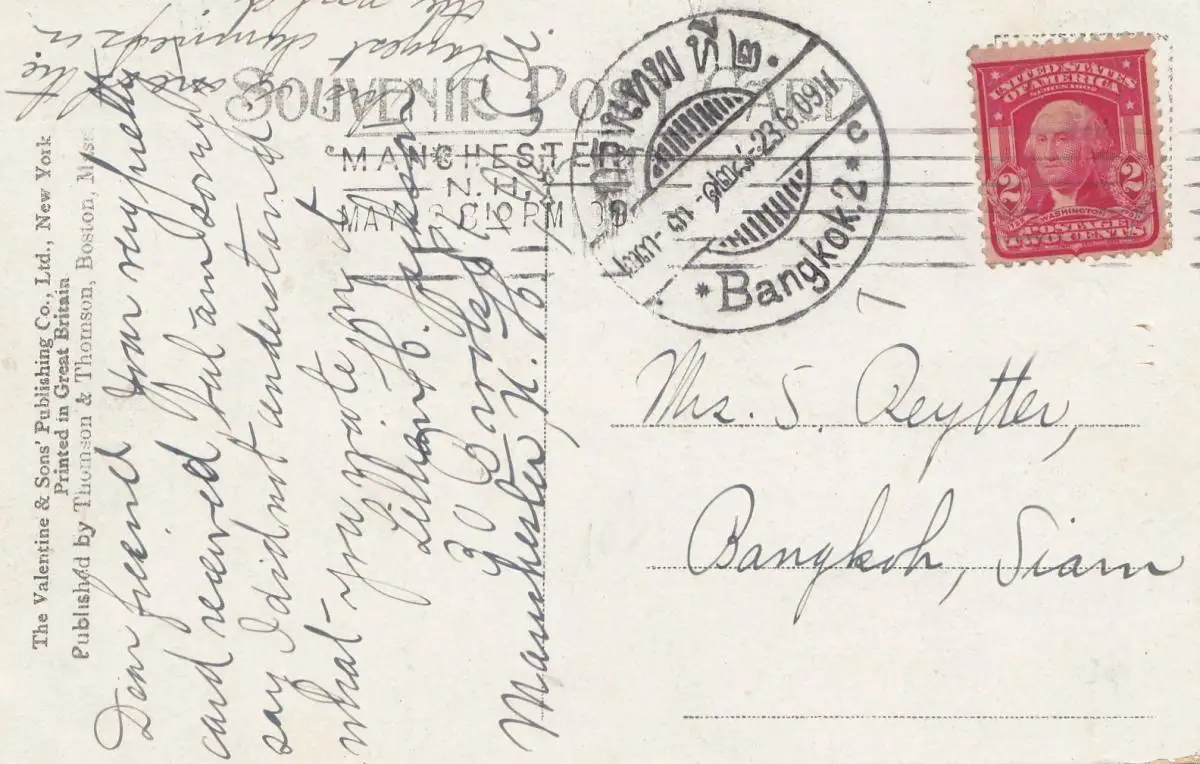 SOUVENIR POST CARD
MANCHESTER
N.H.
MAY
PM
กรุงเทพฯ ที่ ๒.
23.6.09
Bangkok.2
c
UNITED STATES
OF AMERICA
SERIES 1902
2 2
WASHINGTON
POSTAGE
TWO CENTS
Mrs. S. Reytter,
Bangkok, Siam
The Valentine & Sons' Publishing Co., Ltd., New York
Printed in Great Britain
Published by Thomson & Thomson, Boston, Mass
Dear friend Your very pretty
card received, but am sorry to
say I did not understand
what you wrote on it
Lillian
30
Manchester N. H.
largest